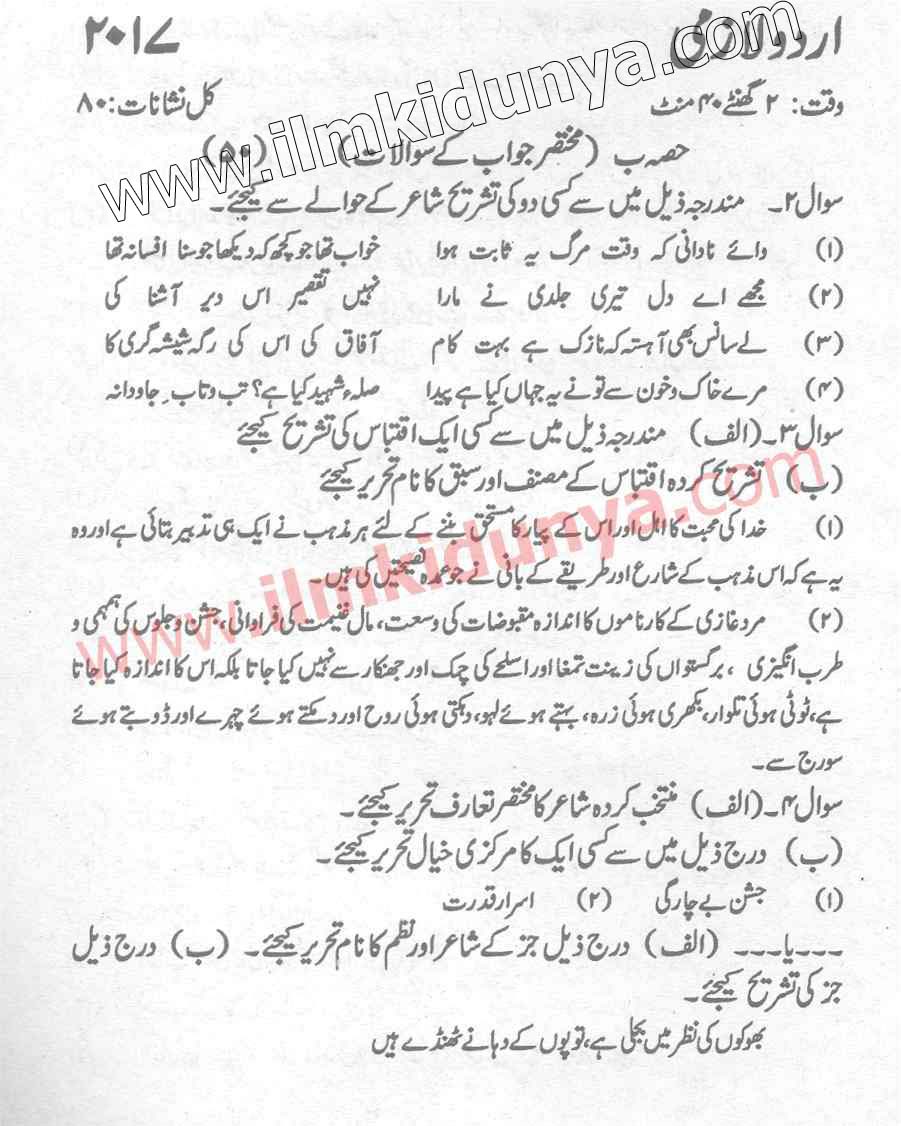 اردو لازمی ۲۰۱۷
www.ilmkidunya.com
وقت: ۲ گھنٹے ۴۰ منٹ کل نشانات: ۸۰
حصہ ب (مختصر جواب کے سوالات) (۵۰)
سوال ۲۔ مندرجہ ذیل میں سے کسی دو کی تشریح شاعر کے حوالے سے کیجئے۔
(۱) وائے نادانی کہ وقت مرگ یہ ثابت ہوا خواب تھا جو کچھ کہ دیکھا جو سنا افسانہ تھا
(۲) مجھے اے دل تیری جلدی نے مارا نہیں تقصیر اس دیر آشنا کی
(۳) لے سانس بھی آہستہ کہ نازک ہے بہت کام آفاق کی اس کی رگہ شیشہ گری کا
(۴) مرے خاک و خون سے تو نے یہ جہاں کیا ہے پیدا صلہء شہید کیا ہے؟ تب و تاب ِ جاودانہ
سوال ۳۔ (الف) مندرجہ ذیل میں سے کسی ایک اقتباس کی تشریح کیجئے
(ب) تشریح کردہ اقتباس کے مصنف اور سبق کا نام تحریر کیجئے
www.ilmkidunya.com
(۱) خدا کی محبت کا اہل اور اس کے پیار کا مستحق بننے کے لئے ہر مذہب نے ایک ہی تدبیر بتائی ہے اور وہ
یہ ہے کہ اس مذہب کے شارع اور طریقے کے بانی نے جو عمدہ نصیحتیں کی ہیں۔
(۲) مرد غازی کے کارناموں کا اندازہ مقبوضات کی وسعت، مال غنیمت کی فراوانی، جشن و جلوس کی ہمہمی و
طرب انگیزی ، برگستواں کی زینت تمغا اور اسلحے کی چمک اور جھنکار سے نہیں کیا جاتا بلکہ اس کا اندازہ کیا جاتا
ہے، ٹوٹی ہوئی تلوار، بکھری ہوئی زرہ، بہتے ہوئے لہو، دہکتی ہوئی روح اور دمکتے ہوئے چہرے اور ڈوبتے ہوئے
سورج سے۔
سوال ۴۔ (الف) منتخب کردہ شاعر کا مختصر تعارف تحریر کیجئے۔
(ب) درج ذیل میں سے کسی ایک کا مرکزی خیال تحریر کیجئے۔
(۱) جشن بے چارگی (۲) اسرار قدرت
۔۔۔یا۔۔۔ (الف) درج ذیل جز کے شاعر اور نظم کا نام تحریر کیجئے۔ (ب) درج ذیل
جز کی تشریح کیجئے۔
بھوکوں کی نظر میں بجلی ہے، توپوں کے دہانے ٹھنڈے ہیں